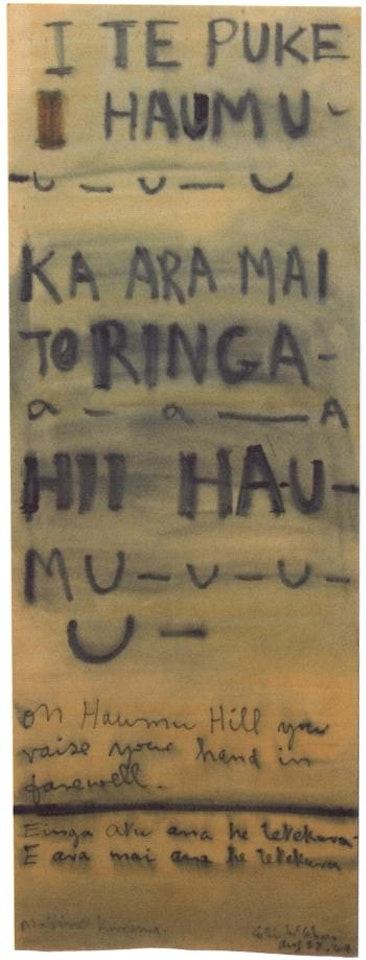 I TE PUKE
I HAUMU -
u - u - u
KA ARA MAI
TO RINGA -
a - a — A
HII HAU -
MU - U - U -
U -
on Haumu Hill you
raise your hand in
farewell.
Einga atu ana he tetekura -
E ara mai ana he tetekura